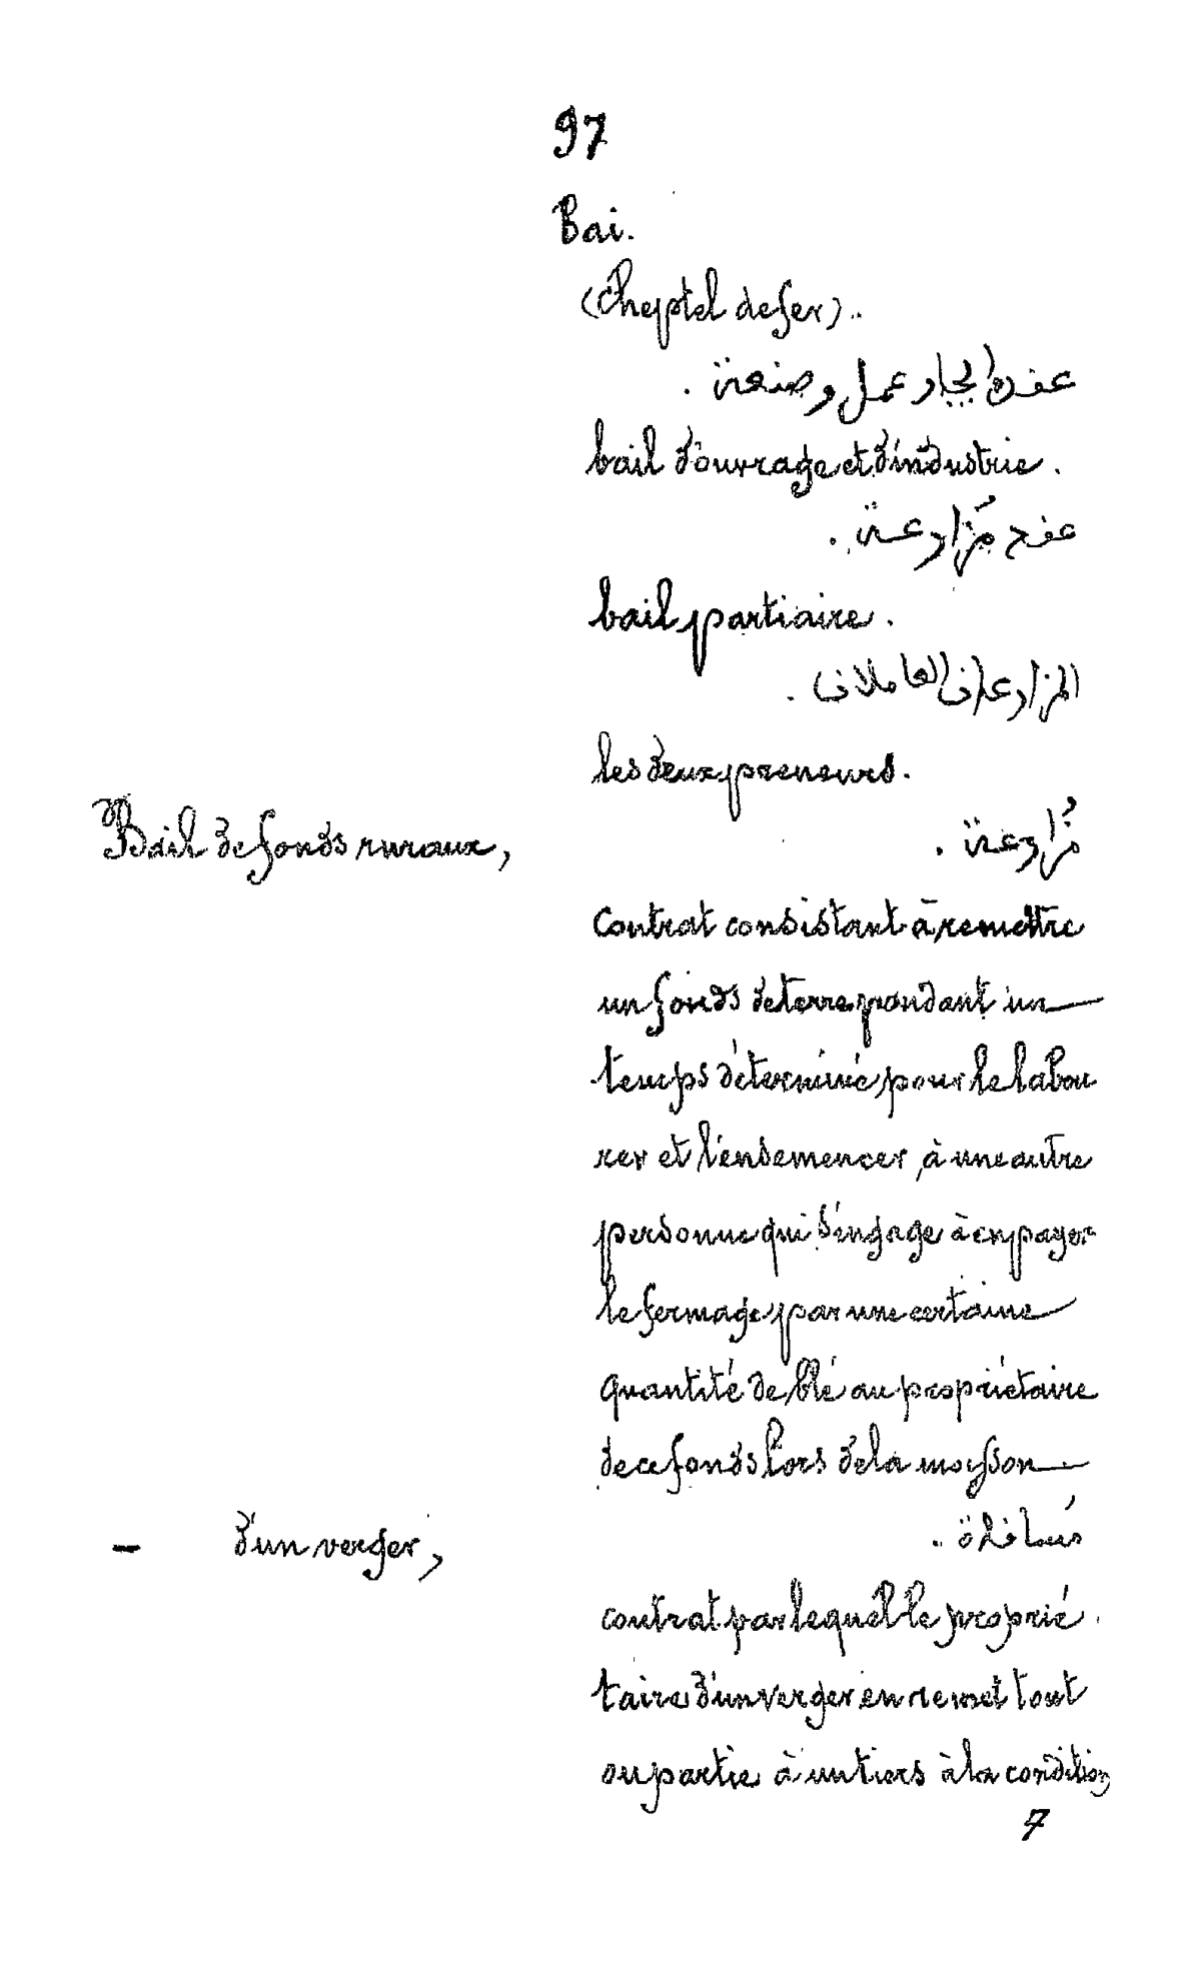 97
Bai.
(Cheptel de fer).
عقد ايجار عمل وصنعة .
bail d'ouvrage et d'industrie .
عقد مُزارعة .
bail partiaire .
المزارعان العاملان .
les deux preneurs.
Bail de fonds ruraux, مُزارعة .
Contrat consistant à remettre
un fonds de terre pendant un
temps déterminé pour le labou
rer et l'ensemencer, à une autre
personne qui s'engage à en payer
le fermage par une certaine
quantité de blé au propriétaire
de ce fonds lors de la moisson
— d'un verger, مُساقاة .
contrat par lequel le proprié
taire d'un verger en remet tout
ou partie à un tiers à la condition
7